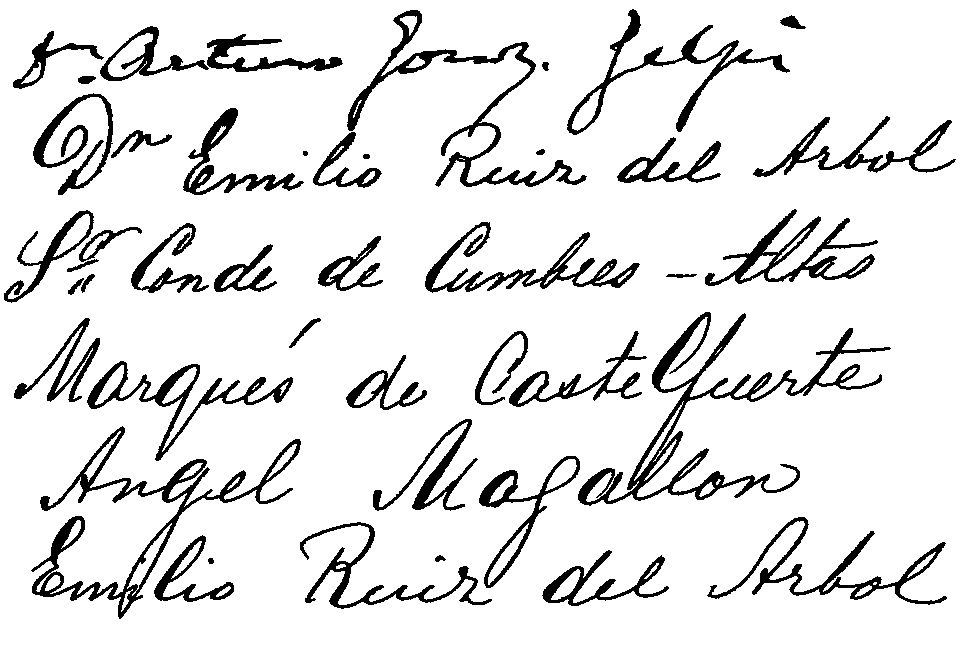 Dn. Arturo Gonz. Gelpi
Dn Emilio Ruiz del Arbol
Sor Conde de Cumbres - Altas
Marqués de Castelfuerte
Angel Magallon
Emilio Ruiz del Arbol